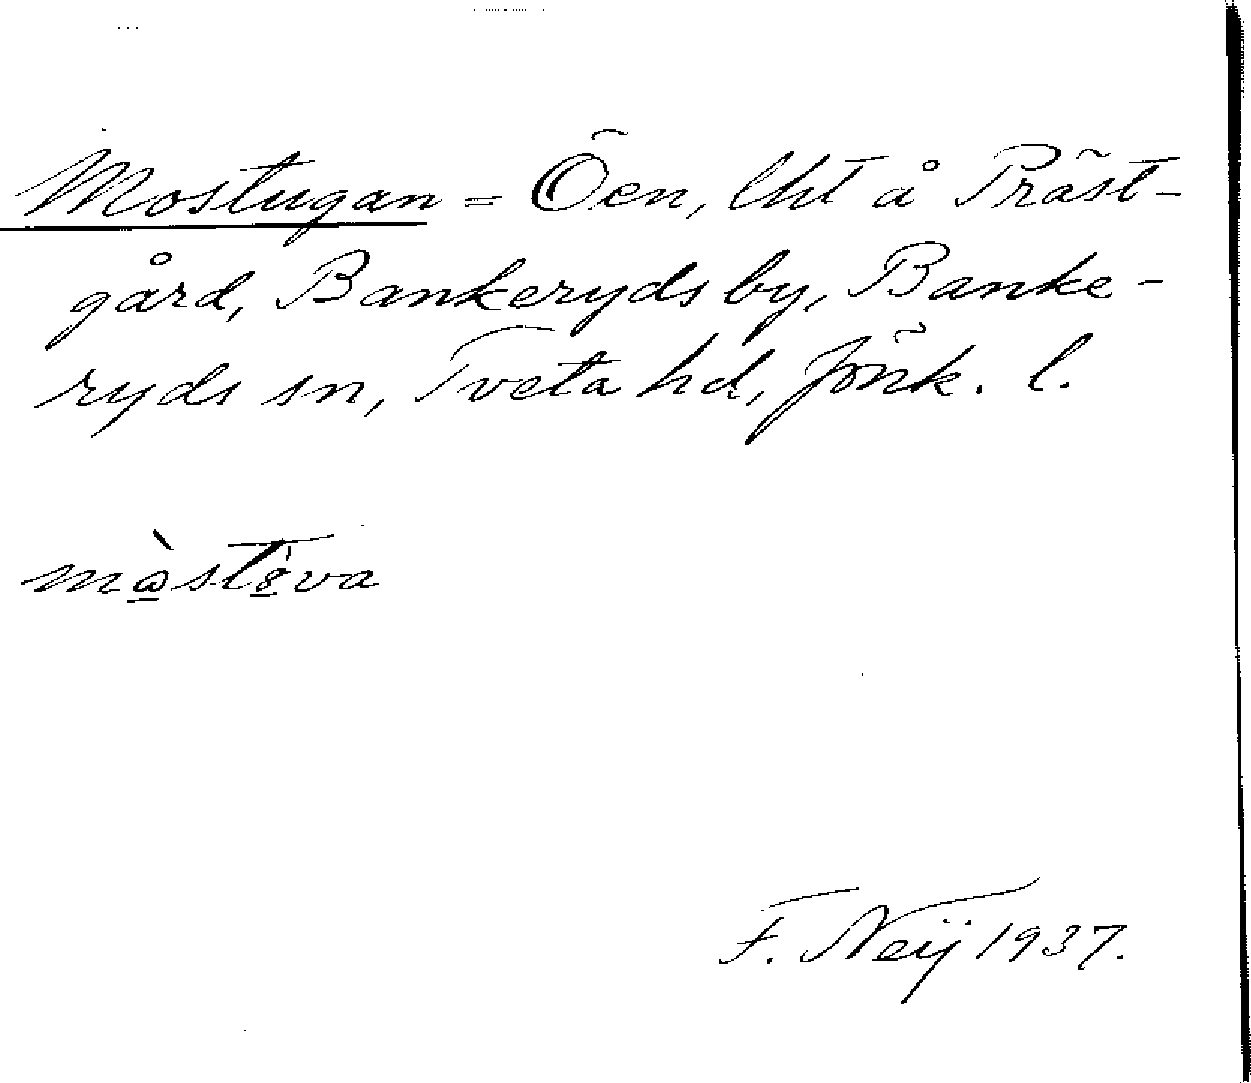 Mostugan = Öen, lht å Präst-
gård, Bankeryds by, Banke-
ryds sn, Tveta hd, Jönk. l.
F. Neij 1937.